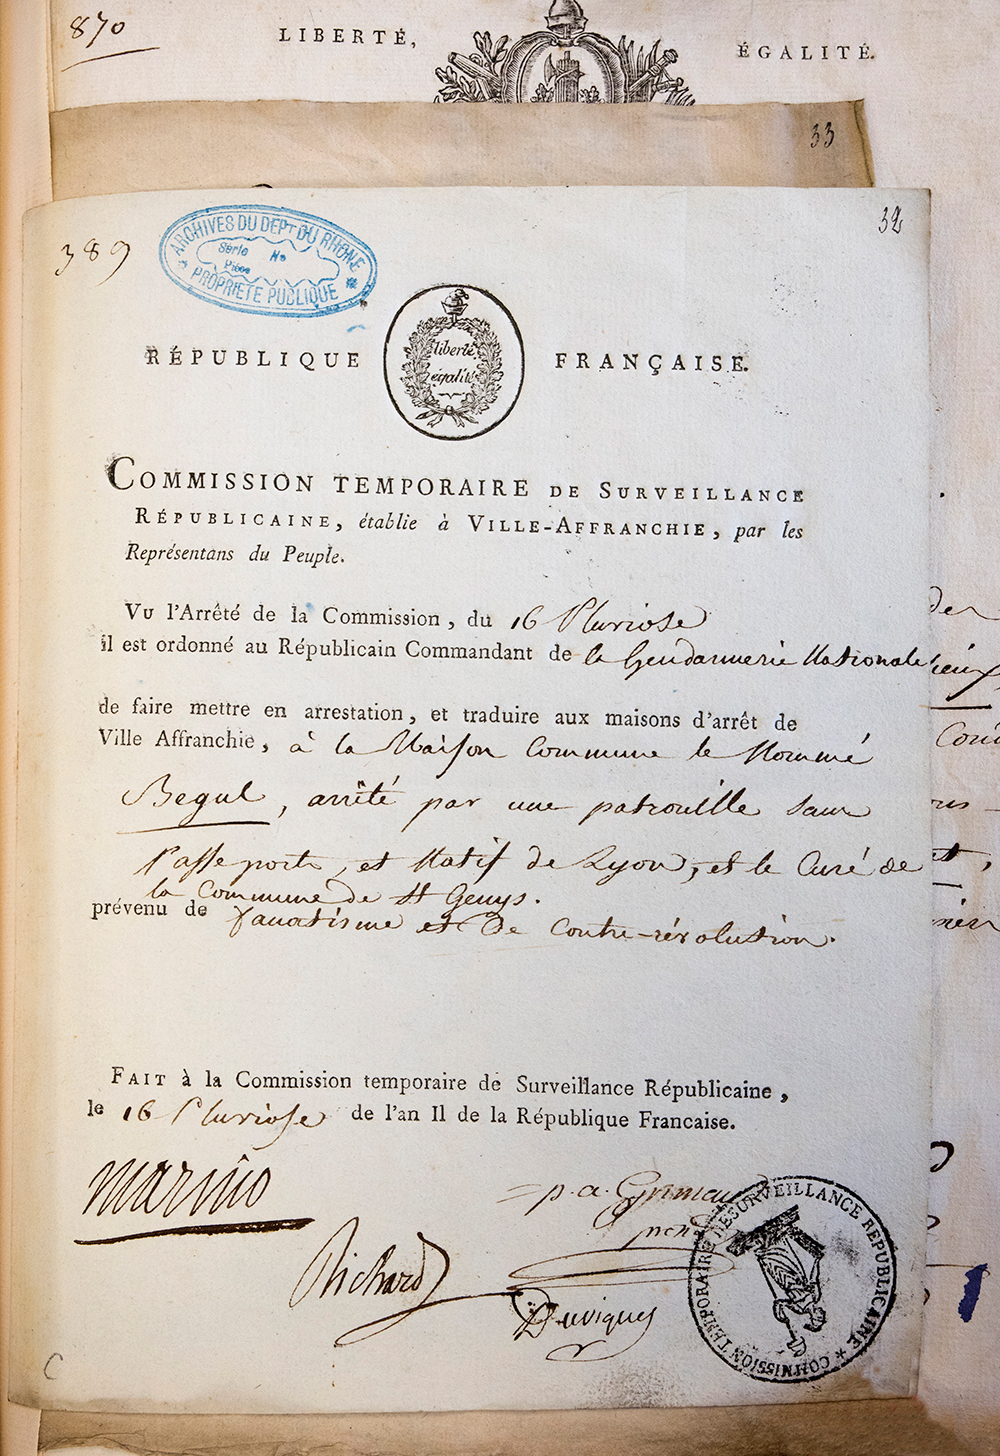 870
LIBERTÉ, ÉGALITÉ.
33
32
389
ARCHIVES DU DEPT DU RHONE
Série No
Pièce
PROPRIETE PUBLIQUE
RÉPUBLIQUE FRANÇAISE.
liberté
égalité
COMMISSION TEMPORAIRE DE SURVEILLANCE
RÉPUBLICAINE, établie à VILLE-AFFRANCHIE, par les
Représentans du Peuple.
VU l'Arrêté de la Commission, du 16 Pluviose
il est ordonné au Républicain Commandant de la Gendarmerie Nationale
de faire mettre en arrestation, et traduire aux maisons d'arrêt de
Ville Affranchie, à la Maison Commune le Nommé
Begul, arrêté par une patrouille sans
Passeport, et Natif de Lyon, et le Curé de
la Commune de St Genys.
prévenu de fanatisme et de Contre-révolution.
FAIT à la Commission temporaire de Surveillance Républicaine,
le 16 Pluviose de l'an II de la République Francaise.
marino
p. a.
Richard
Duviquey
COMMISSION TEMPORAIRE DE SURVEILLANCE REPUBLICAINE
C